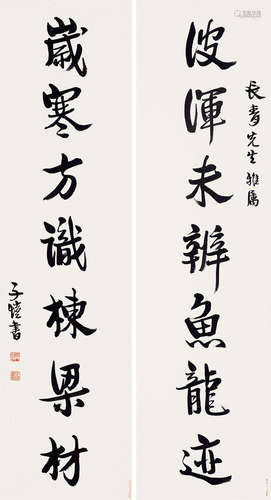 長青先生雅屬
波渾未辨魚龍迹
歲寒方識棟梁材
子曀書